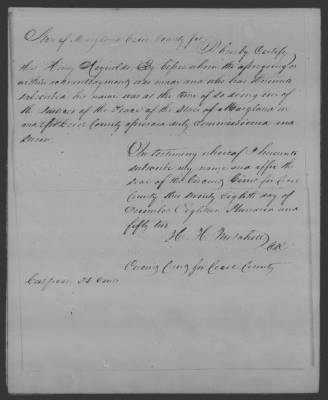 State of Maryland Cecil County for
I hereby Certify
that Henry Reynolds Esq before whom the aforegoing or
within acknowledgment was made and who has thereunto
subscribed his name was at the time of so doing one of
the Justices of the Peace of the State of Maryland in
and for Cecil County aforesaid duly commissioned and
sworn.
In testimony whereof I hereunto
subscribe my name and affix the
seal of the Circuit Court for Cecil
County this twenty Eighth day of
December Eighteen Hundred and
fifty two
H. H. Mitchell
Clk
Circuit Court for Cecil County